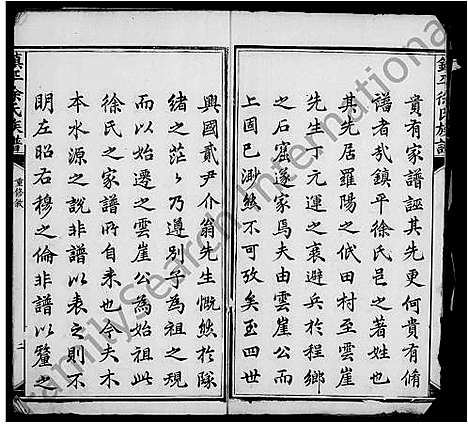 鎮平徐氏族譜
貴有家譜誣其先更何貴有脩
譜者哉鎮平徐氏邑之著姓也
其先居羅陽之伐田村至雲崖
先生丁元運之衰避兵於程鄉
之石窟遂家焉夫由雲崖公而
上固已渺然不可攷矣至四世
興國貳尹介翁先生慨然於隊
緒之茫茫乃遵別子為祖之規
而以始遷之雲崖公為始祖此
徐氏之家譜所自来也今夫木
本水源之說非譜以表之則不
明左昭右穆之倫非譜以釐之
鎮平徐氏族譜
重修敘
二
FamilySearch International